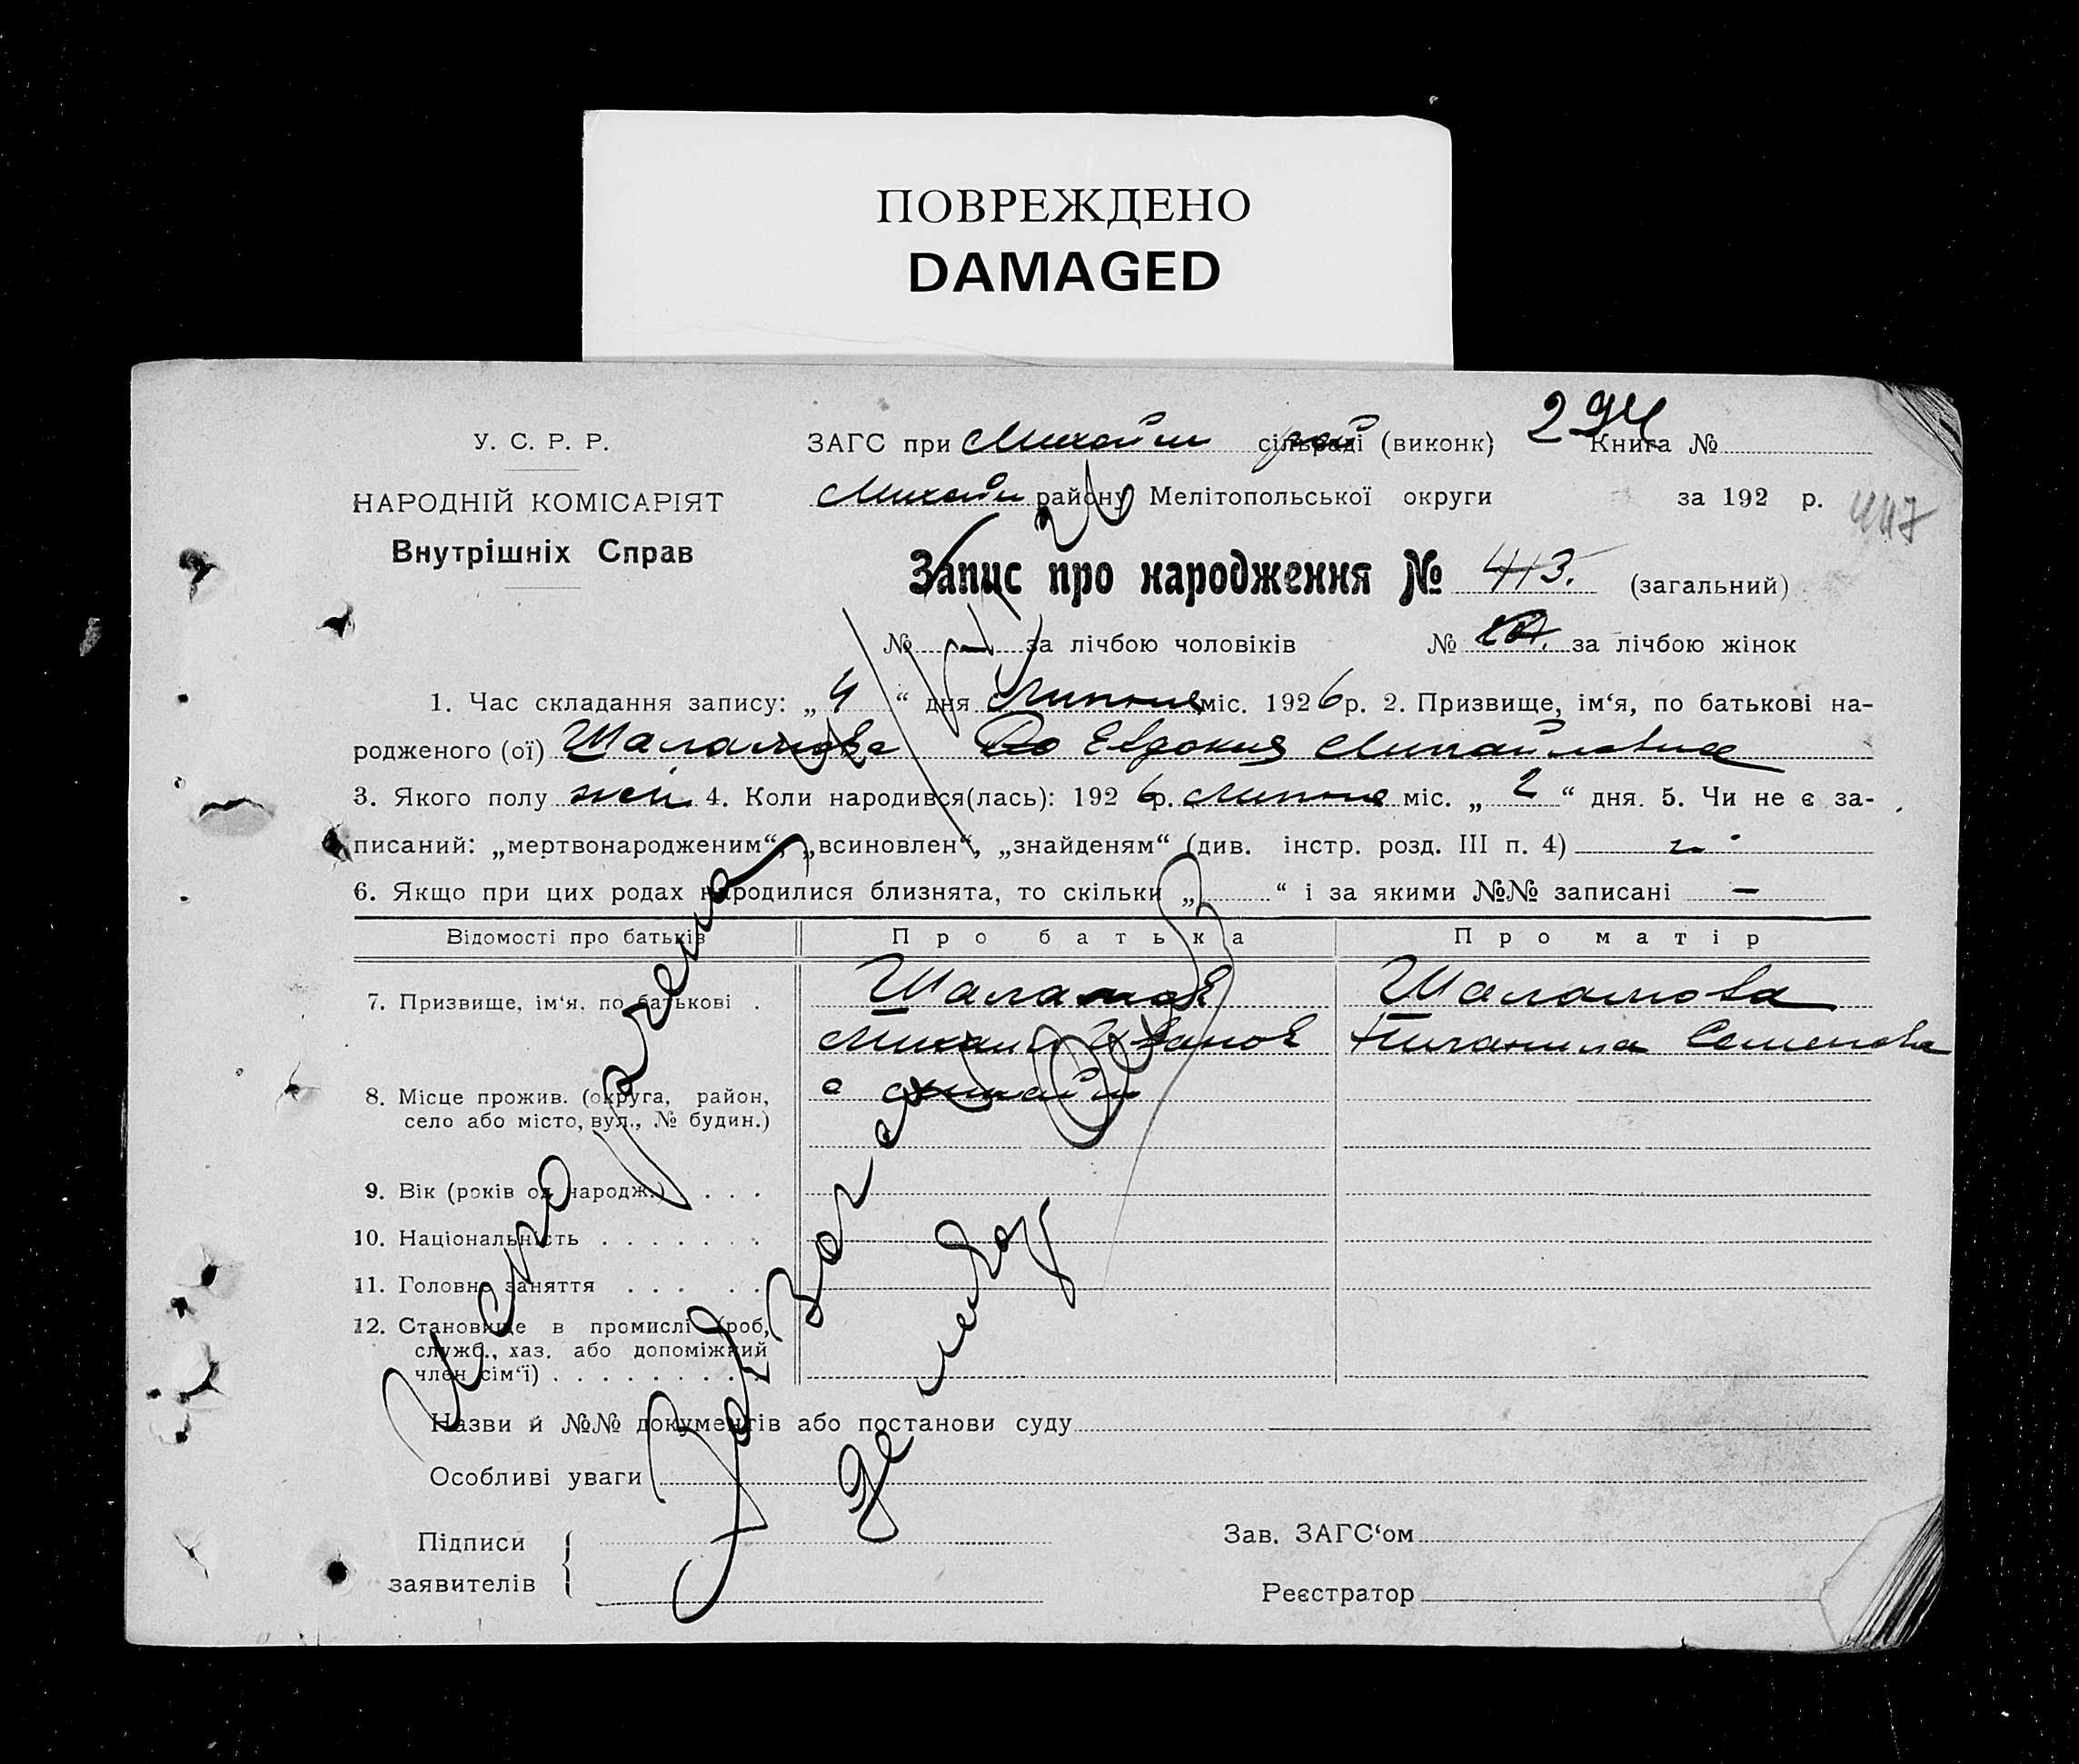 ПОВРЕЖДЕНО
DAMAGED
У. С. Р. Р.
НАРОДНІЙ КОМІСАРІЯТ
Внутрішніх Справ
ЗАГС при Михайл сільраді (виконк) 294 Книга №
Михайл району Мелітопольської округи за 192 р.
447
Запис про народження № 413. (загальний)
№ — за лічбою чоловіків № за лічбою жінок
1. Час складання запису: „ 4 “ дня Липня міс. 1926 р. 2. Призвище, ім‘я, по батькові на-
родженого (ої) Шаламова Евдокия Михайловна
3. Якого полу жен 4. Коли народився(лась): 1926 р. Липня міс. „ 2 “ дня. 5. Чи не є за-
писаний: „мертвонародженим“, „всиновлен“, „знайденям“ (див. інстр. розд. III п. 4)
6. Якщо при цих родах народилися близнята, то скільки „ “ і за якими №№ записані —
Відомості про батьків Про батька Про матір
7. Призвище, ім‘я, по батькові . Шаламов Шаламова
Михаил Иванов Семенова
8. Місце прожив. (округа, район, с Михайл
село або місто, вул., № будин.)
9. Вік (років од народж.) . . .
10. Національність . . . . . . .
11. Головне заняття . . . . .
12. Становище в промислі (роб,
служб., хаз. або допоміжний
член сім‘ї) . . . . . . . . . .
Назви й №№ документів або постанови суду
Особливі уваги
Підписи
заявителів
Зав. ЗАГС‘ом
Реєстратор
Испорчена
Зав Загса